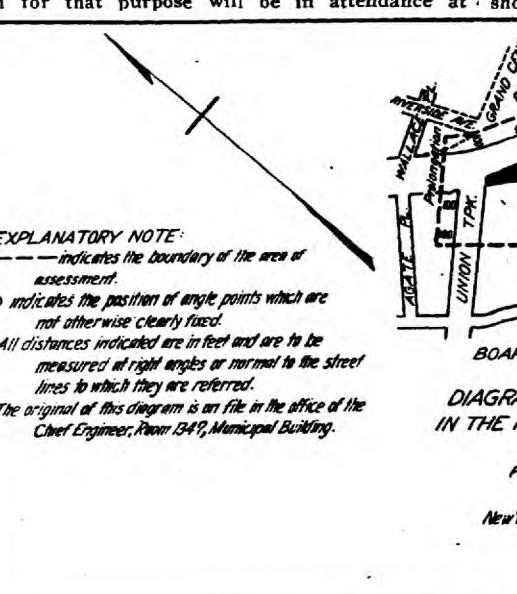 for that purpose will be in attendance at
EXPLANATORY NOTE:
indicates the boundary of the area of
assessment.
indicates the position of angle points which are
not otherwise clearly fixed.
All distances indicated are in feet and are to be
measured at right angles or normal to the street
lines to which they are referred.
The original of this diagram is on file in the office of the
Chief Engineer, Room 1347, Municipal Building.
RIVERSIDE AVE.
GRAND CEN
WALLACE PL.
Prolongation
AGATE PL.
UNION TPK.
100
100
BOAR
DIAGRA
IN THE
New Y